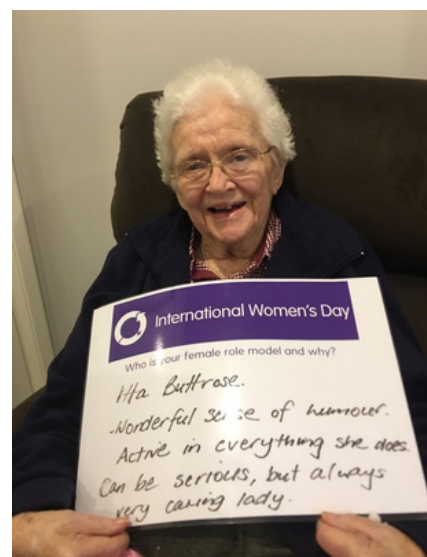 International Women's Day
Who is your female role model and why?
Ita Buttrose.
-Wonderful sense of humour.
Active in everything she does.
Can be serious, but always
very caring lady.